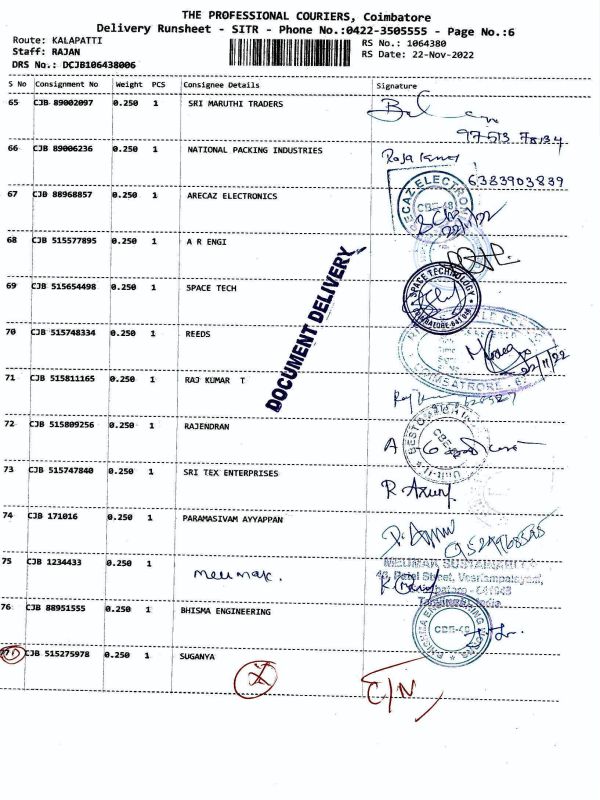 THE PROFESSIONAL COURIERS, Coimbatore
Delivery Runsheet - SITR - Phone No.:0422-3505555 - Page No.:6
Route: KALAPATTI
RS No.: 1064380
Staff: RAJAN
RS Date: 22-Nov-2022
DRS No.: DCJB106438006
S No Consignment No Weight PCS Consignee Details Signature
65 CJB 89002097 0.250 1 SRI MARUTHI TRADERS
66 CJB 89006236 0.250 1 NATIONAL PACKING INDUSTRIES
6383903839
67 CJB 88968857 0.250 1 ARECAZ ELECTRONICS
68 CJB 515577895 0.250 1 A R ENGI
69 CJB 515654498 0.250 1 SPACE TECH
SPACE TECHNOLOGY
DOCUMENT DELIVERY
70 CJB 515748334 0.250 1 REEDS
22/11/22
71 CJB 515811165 0.250 1 RAJ KUMAR T
72 CJB 515809256 0.250 1 RAJENDRAN
73 CJB 515747840 0.250 1 SRI TEX ENTERPRISES
74 CJB 171016 0.250 1 PARAMASIVAM AYYAPPAN
75 CJB 1234433 0.250 1 meumak.
MEUMAK
76 CJB 88951555 0.250 1 BHISMA ENGINEERING
77 CJB 515275978 0.250 1 SUGANYA
C/N